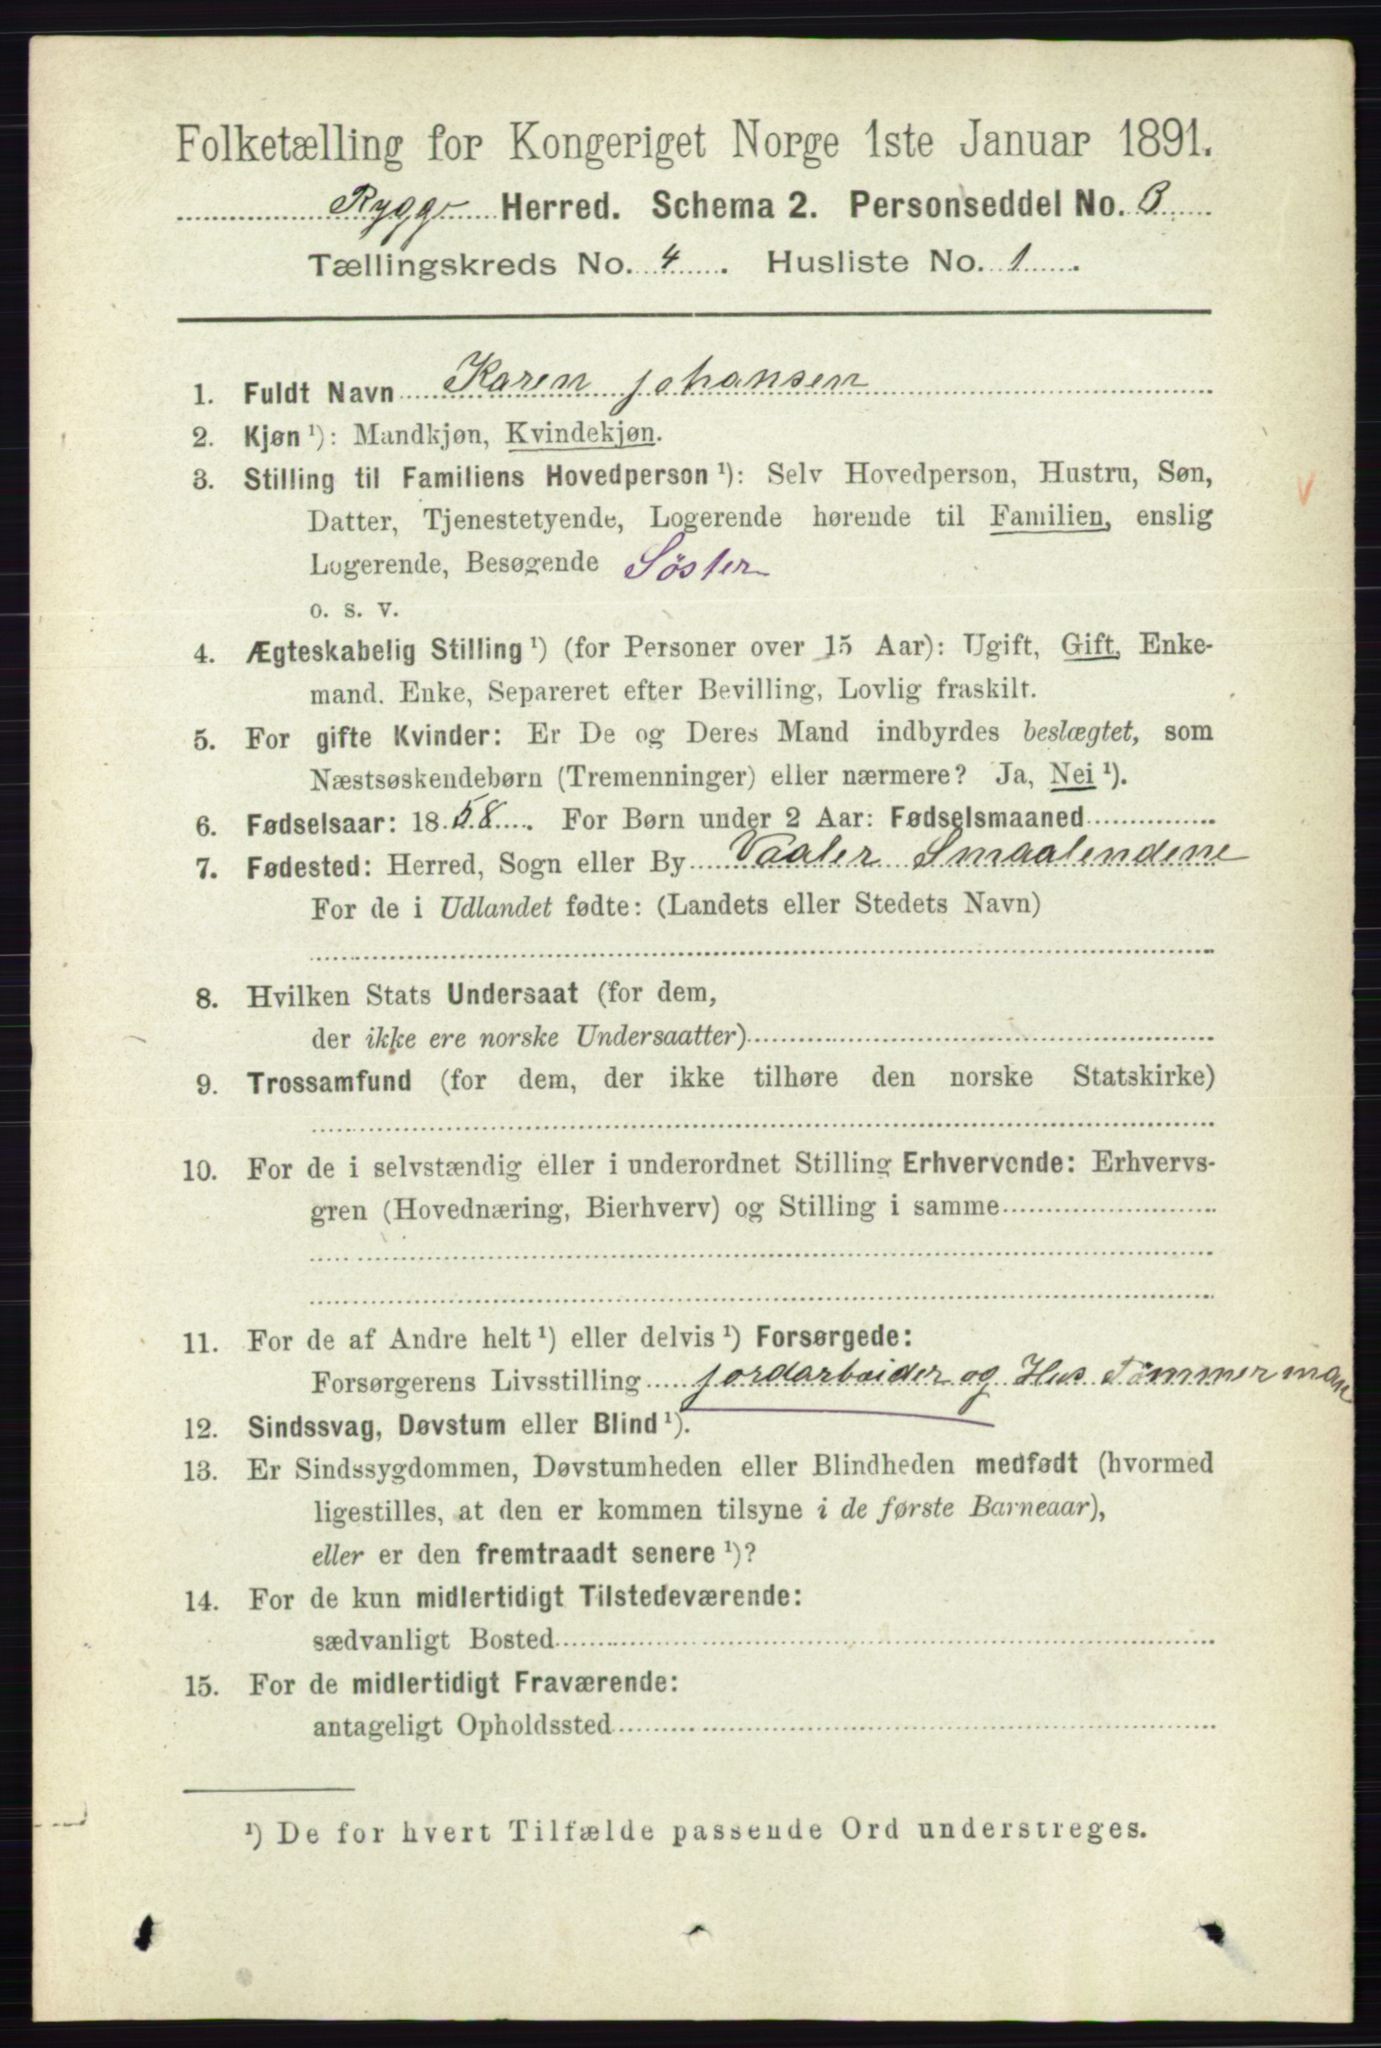 Folketælling for Kongeriget Norge 1ste Januar 1891.
Rygge Herred. Schema 2. Personseddel No. 8
Tællingskreds No. 4. Husliste No. 1.
1. Fuldt Navn Karen Johansen
2. Kjøn ¹): Mandkjøn, Kvindekjøn.
3. Stilling til Familiens Hovedperson ¹): Selv Hovedperson, Hustru, Søn,
Datter, Tjenestetyende, Logerende hørende til Familien, enslig
Logerende, Besøgende Søster
o. s. v.
4. Ægteskabelig Stilling ¹) (for Personer over 15 Aar): Ugift, Gift, Enke-
mand. Enke, Separeret efter Bevilling, Lovlig fraskilt.
5. For gifte Kvinder: Er De og Deres Mand indbyrdes beslægtet, som
Næstsøskendebørn (Tremenninger) eller nærmere? Ja, Nei ¹).
6. Fødselsaar: 1858. For Børn under 2 Aar: Fødselsmaaned
7. Fødested: Herred, Sogn eller By Vaaler Smaalendene
For de i Udlandet fødte: (Landets eller Stedets Navn)
8. Hvilken Stats Undersaat (for dem,
der ikke ere norske Undersaatter)
9. Trossamfund (for dem, der ikke tilhøre den norske Statskirke)
10. For de i selvstændig eller i underordnet Stilling Erhvervende: Erhvervs-
gren (Hovednæring, Bierhverv) og Stilling i samme
11. For de af Andre helt ¹) eller delvis ¹) Forsørgede:
Forsørgerens Livsstilling jordarbeider og Hus Tømmerman
12. Sindssvag, Døvstum eller Blind ¹).
13. Er Sindssygdommen, Døvstumheden eller Blindheden medfødt (hvormed
ligestilles, at den er kommen tilsyne i de første Barneaar),
eller er den fremtraadt senere ¹)?
14. For de kun midlertidigt Tilstedeværende:
sædvanligt Bosted
15. For de midlertidigt Fraværende:
antageligt Opholdssted
¹) De for hvert Tilfælde passende Ord understreges.